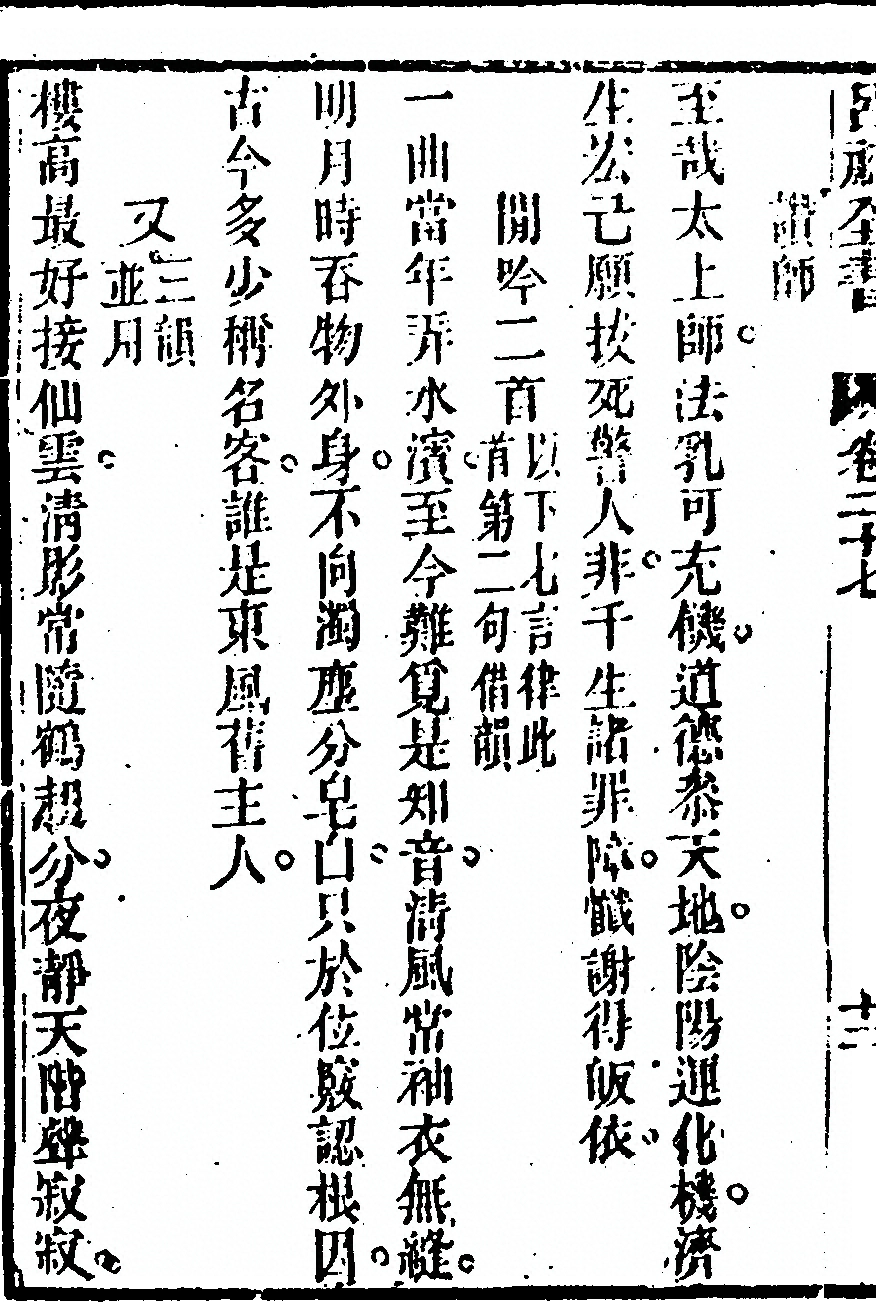 呂祖全書 卷二十七 十二
讚師
至哉太上師。法乳可充饑。道德叅天地。陰陽運化機。濟
生宏己願拔死警人非。千生諸罪障。懺謝得皈依。
閒吟二首 以下七言律此
首第二句借韻
一曲當年弄水濱。至今難覓是知音。清風常袖衣無縫。
明月時吞物外身。不向濁塵分皂白。只於位竅認根因。
古今多少稱名客。誰是東風舊主人。
又 三韻
並用
樓高最好接仙雲。清影常隨鶴趂分。夜靜天階聲寂寂。